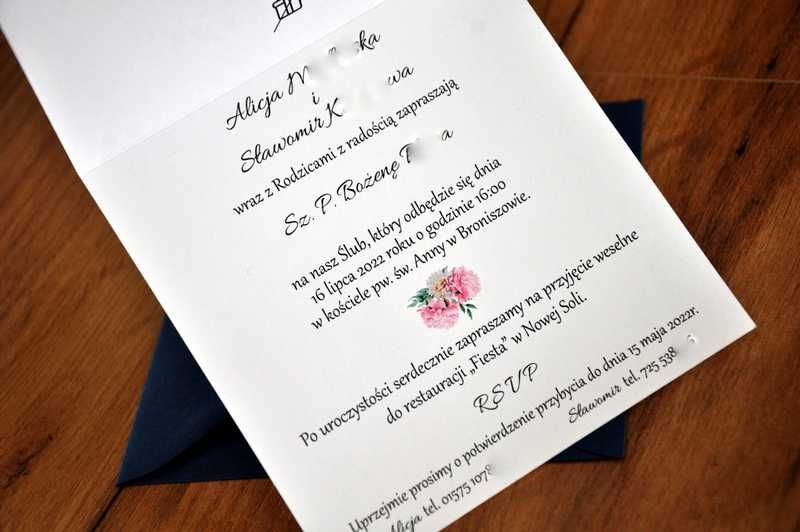 Alicja
i
Sławomir
wraz z Rodzicami z radością zapraszają
Sz. P. Bożenę
na nasz Ślub, który odbędzie się dnia
16 lipca 2022 roku o godzinie 16:00
w kościele pw. św. Anny w Broniszowie.
Po uroczystości serdecznie zapraszamy na przyjęcie weselne
do restauracji „Fiesta” w Nowej Soli.
RSVP
Uprzejmie prosimy o potwierdzenie przybycia do dnia 15 maja 2022r.
Alicja tel. 01575 107 Sławomir tel. 725 538